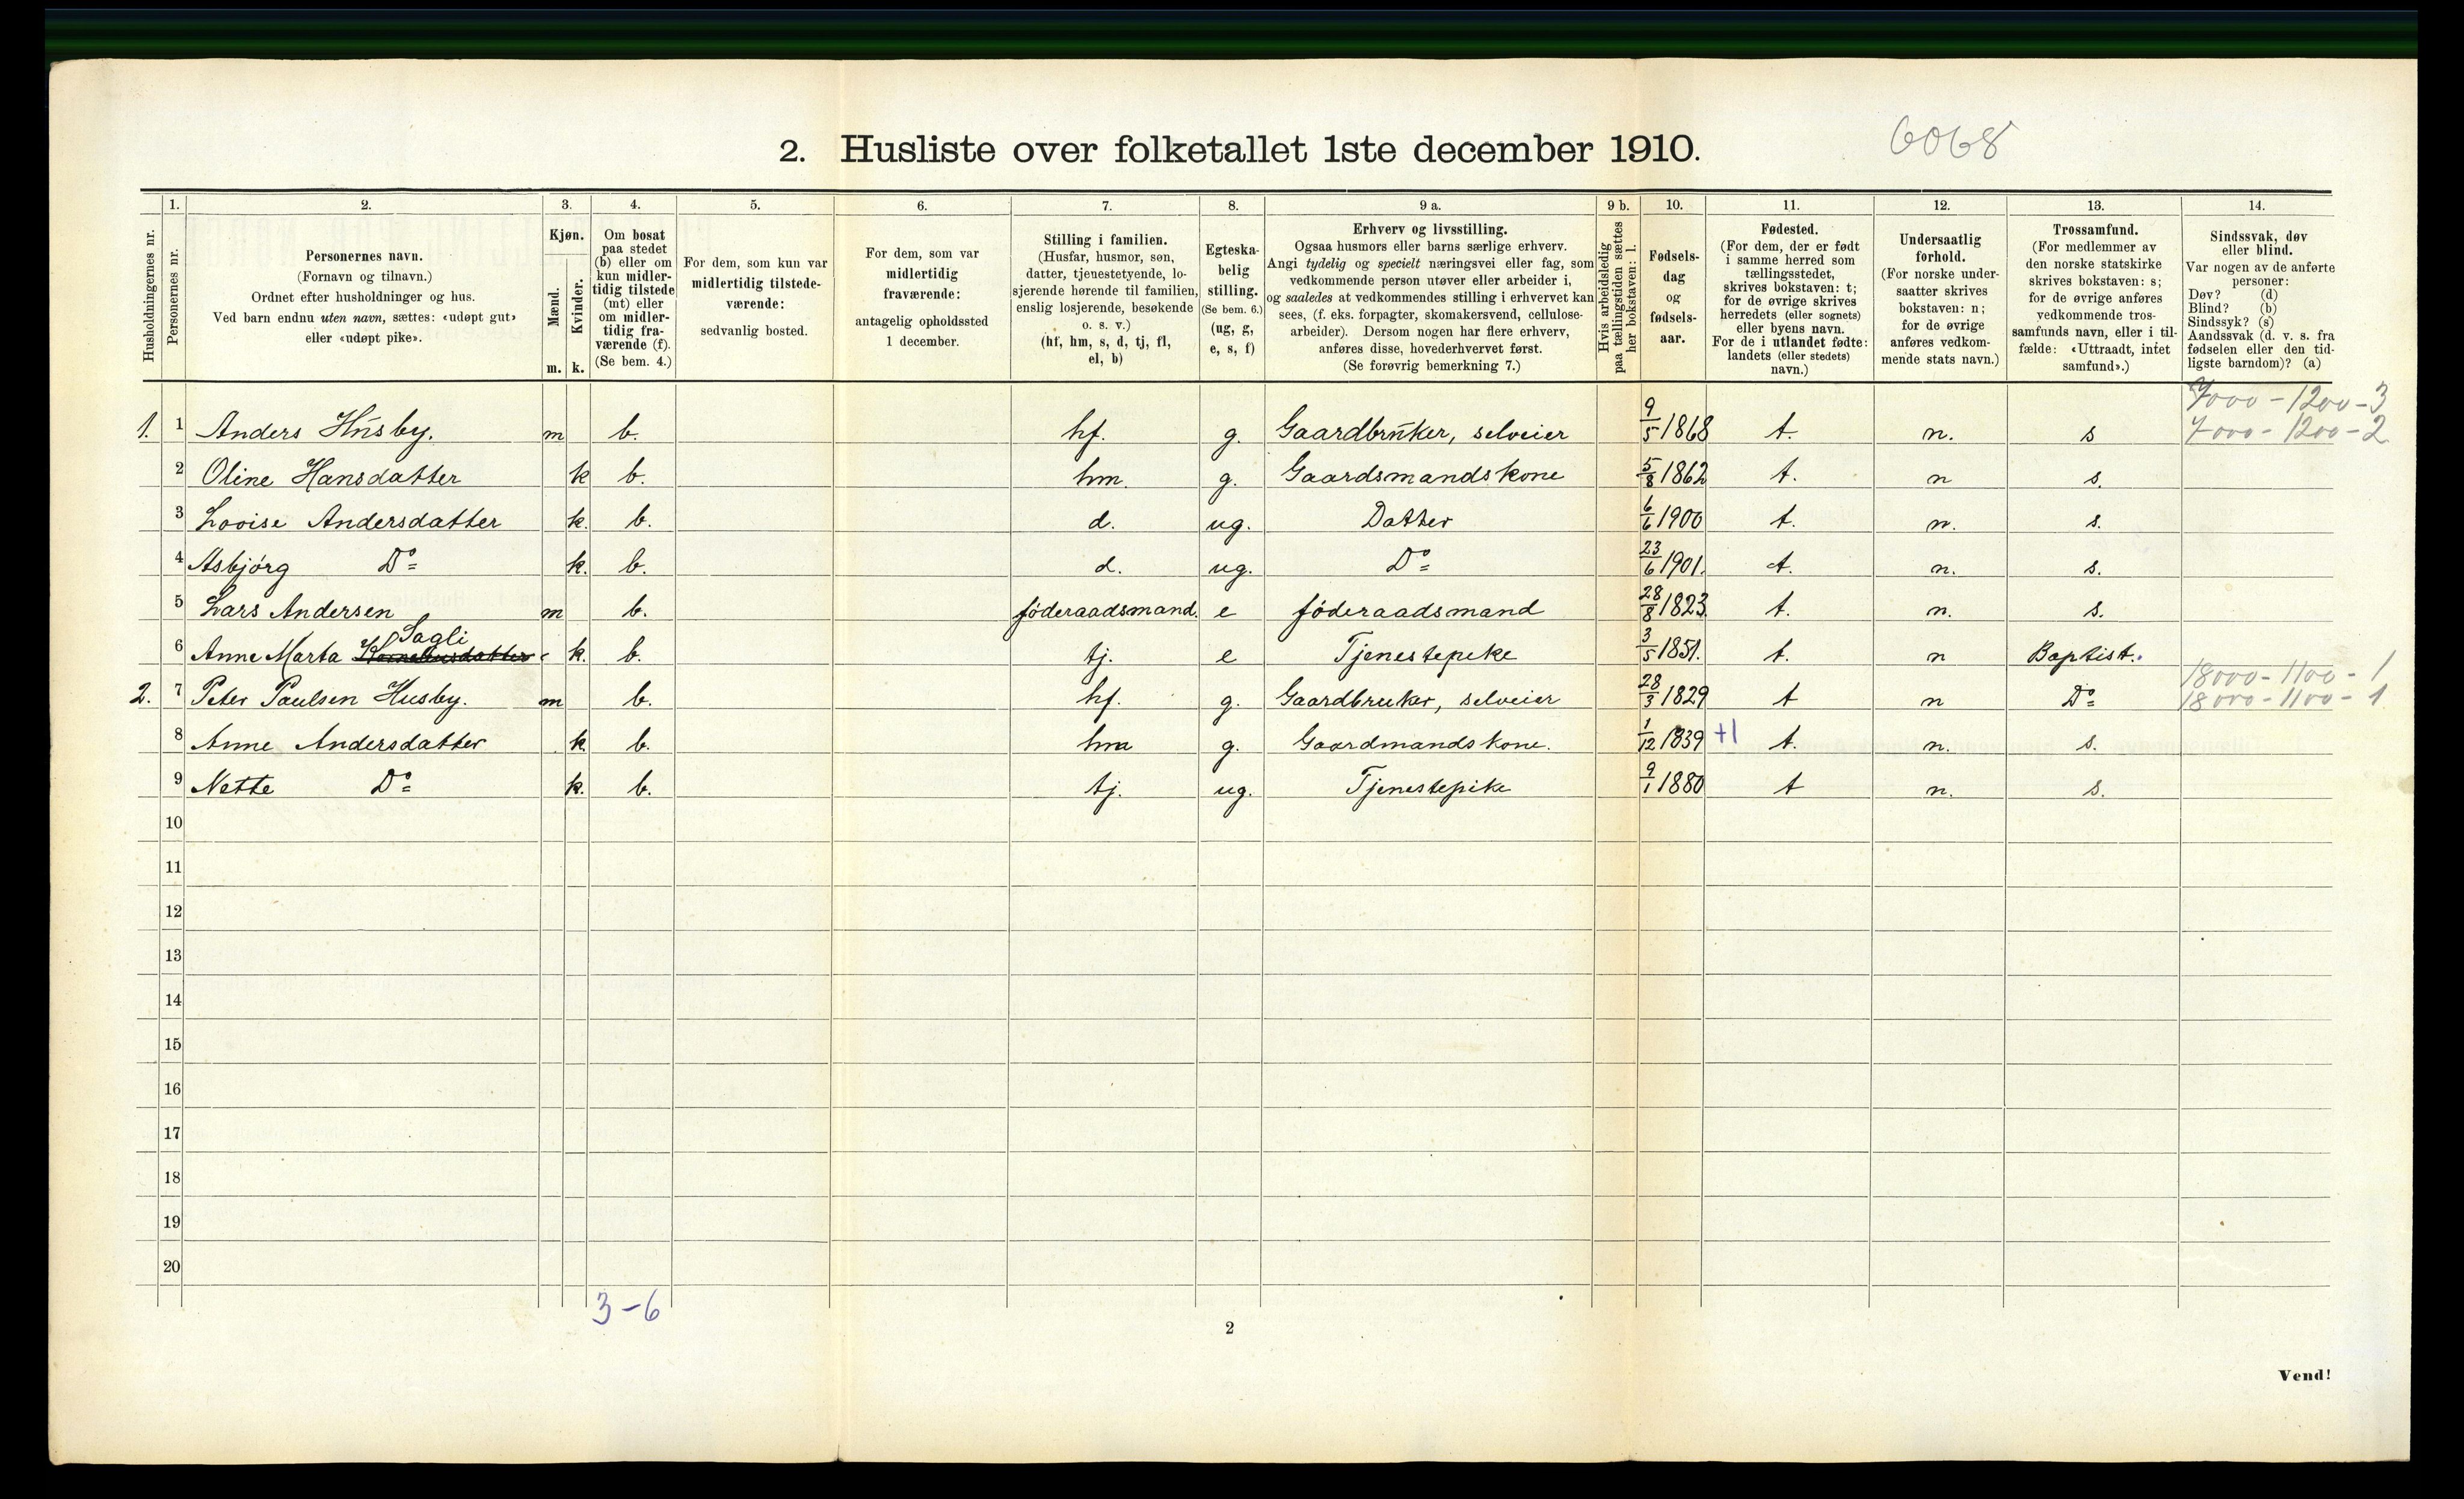 2. Husliste over folketallet 1ste december 1910.
6068
Husholdningernes nr.
1.
Personernes nr.
2.
Personernes navn.
(Fornavn og tilnavn.)
Ordnet efter husholdninger og hus.
Ved barn endnu uten navn, sættes: «udøpt gut»
eller «udøpt pike».
3.
Kjøn.
Mænd.
Kvinder.
m. k.
4.
Om bosat
paa stedet
(b) eller om
kun midler-
tidig tilstede
(mt) eller
om midler-
tidig fra-
værende (f).
(Se bem. 4.)
5.
For dem, som kun var
midlertidig tilstede-
værende:
sedvanlig bosted.
6.
For dem, som var
midlertidig
fraværende:
antagelig opholdssted
1 december.
7.
Stilling i familien.
(Husfar, husmor, søn,
datter, tjenestetyende, lo-
sjerende hørende til familien,
enslig losjerende, besøkende
o. s. v.)
(hf, hm, s, d, tj, fl,
el, b)
8.
Egteska-
belig
stilling.
(Se bem. 6.)
(ug, g,
e, s, f)
9 a.
Erhverv og livsstilling.
Ogsaa husmors eller barns særlige erhverv.
Angi tydelig og specielt næringsvei eller fag, som
vedkommende person utøver eller arbeider i,
og saaledes at vedkommendes stilling i erhvervet kan
sees, (f. eks. forpagter, skomakersvend, cellulose-
arbeider). Dersom nogen har flere erhverv,
anføres disse, hovederhvervet først.
(Se forøvrig bemerkning 7.)
9 b.
Hvis arbeidsledig
paa tællingstiden sættes
her bokstaven: l.
10.
Fødsels-
dag
og
fødsels-
aar.
11.
Fødested.
(For dem, der er født
i samme herred som
tællingsstedet,
skrives bokstaven: t;
for de øvrige skrives
herredets (eller sognets)
eller byens navn.
For de i utlandet fødte:
landets (eller stedets)
navn.)
12.
Undersaatlig
forhold.
(For norske under-
saatter skrives
bokstaven: n;
for de øvrige
anføres vedkom-
mende stats navn.)
13.
Trossamfund.
(For medlemmer av
den norske statskirke
skrives bokstaven: s;
for de øvrige anføres
vedkommende tros-
samfunds navn, eller i til-
fælde: «Uttraadt, intet
samfund».)
14.
Sindssvak, døv
eller blind.
Var nogen av de anførte
personer:
Døv? (d)
Blind? (b)
Sindssyk? (s)
Aandssvak (d. v. s. fra
fødselen eller den tid-
ligste barndom)? (a)
7000 - 1200 - 3
1. 1 Anders Husby. m b. hf. g. Gaardbruker, selveier 9/5 1868 t. n. s 7000 - 1200 - 2
2 Oline Hansdatter k b. hm. g. Gaardsmandskone 5/8 1862 t. n s.
3 Lovise Andersdatter k. b. d. ug. Datter 6/6 1900 t. n. s.
4 Asbjörg Do k. b. d. ug. Do 23/6 1901. t. n. s.
5 Lars Andersen m b. föderaadsmand. e föderaadsmand 28/8 1823 t. n. s.
Sagli
6 Anne Marta Korneliusdatter k. b. tj. e Tjenestepeke 3/5 1851. t. n Baptist.
18000 - 1100 - 1
2. 7 Peter Paulsen Husby. m b. hf. g. Gaardbruker, selveier 28/3 1829 t n Do 18000 - 1100 - 1
8 Anne Andersdatter k. b. hm g. Gaardmandskone. 1/12 1839 +1 t. n. s.
9 Nette Do k. b. tj. ug. Tjenestepike 9/1 1880 t n. s.
10
11
12
13
14
15
16
17
18
19
20
3-6
2
Vend!